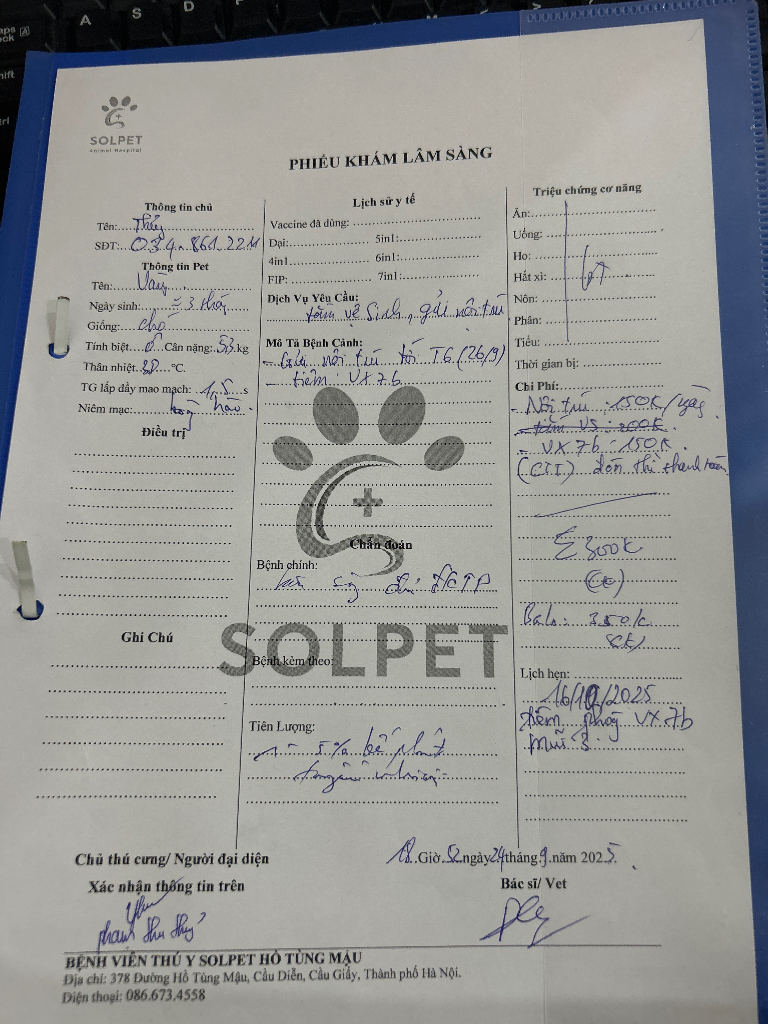 SOLPET
Animal Hospital
PHIẾU KHÁM LÂM SÀNG
Thông tin chủ
Tên: Thủy
SĐT: 034.861.2211
Thông tin Pet
Tên: Vàng
Ngày sinh: ≈ 3 tháng
Giống: chó
Tính biệt: Cân nặng: 5,3 kg
Thân nhiệt: 38 °C.
TG lấp đầy mao mạch: 1,5 s
Niêm mạc: hồng hào
Điều trị
Ghi Chú
Lịch sử y tế
Vaccine đã dùng:
Dại: 5in1:
4in1 6in1:
FIP: 7in1:
Dịch Vụ Yêu Cầu:
tắm vệ sinh, gửi nội trú
Mô Tả Bệnh Cảnh:
- Gửi nội trú tới T6 (26/9)
- tiêm: VX 7b
Chẩn đoán
Bệnh chính:
SOLPET
Bệnh kèm theo:
Tiên Lượng:
5%
Triệu chứng cơ năng
Ăn:
Uống:
Ho:
Hắt xì:
Nôn:
Phân:
Tiểu:
Thời gian bị:
Chi Phí:
- Nội trú: 150K/ngày
- tắm VS: 200K.
- VX 7b: 150K.
đón thì thanh toán
Σ 300K
(CK)
Balo: 350k
(CK)
Lịch hẹn:
16/10/2025
tiêm phòng VX 7b
mũi 3.
18 Giờ 52 ngày 24 tháng 9 .năm 2025.
Chủ thú cưng/ Người đại diện
Xác nhận thông tin trên
Phạm Thu Thuỷ
Bác sĩ/ Vet
BỆNH VIỆN THÚ Y SOLPET HỒ TÙNG MẬU
Địa chỉ: 378 Đường Hồ Tùng Mậu, Cầu Diễn, Cầu Giấy, Thành phố Hà Nội.
Điện thoại: 086.673.4558